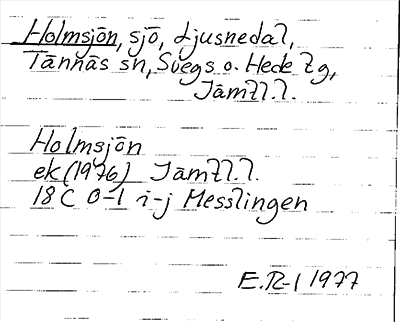 Holmsjön, sjö, Ljusnedal,
Tännäs sn, Svegs o. Hede tg,
Jämtl l.
Holmsjön
ek (1976) Jämtl. l.
18 C 0-1 i-j Messlingen
E.R-l 1977